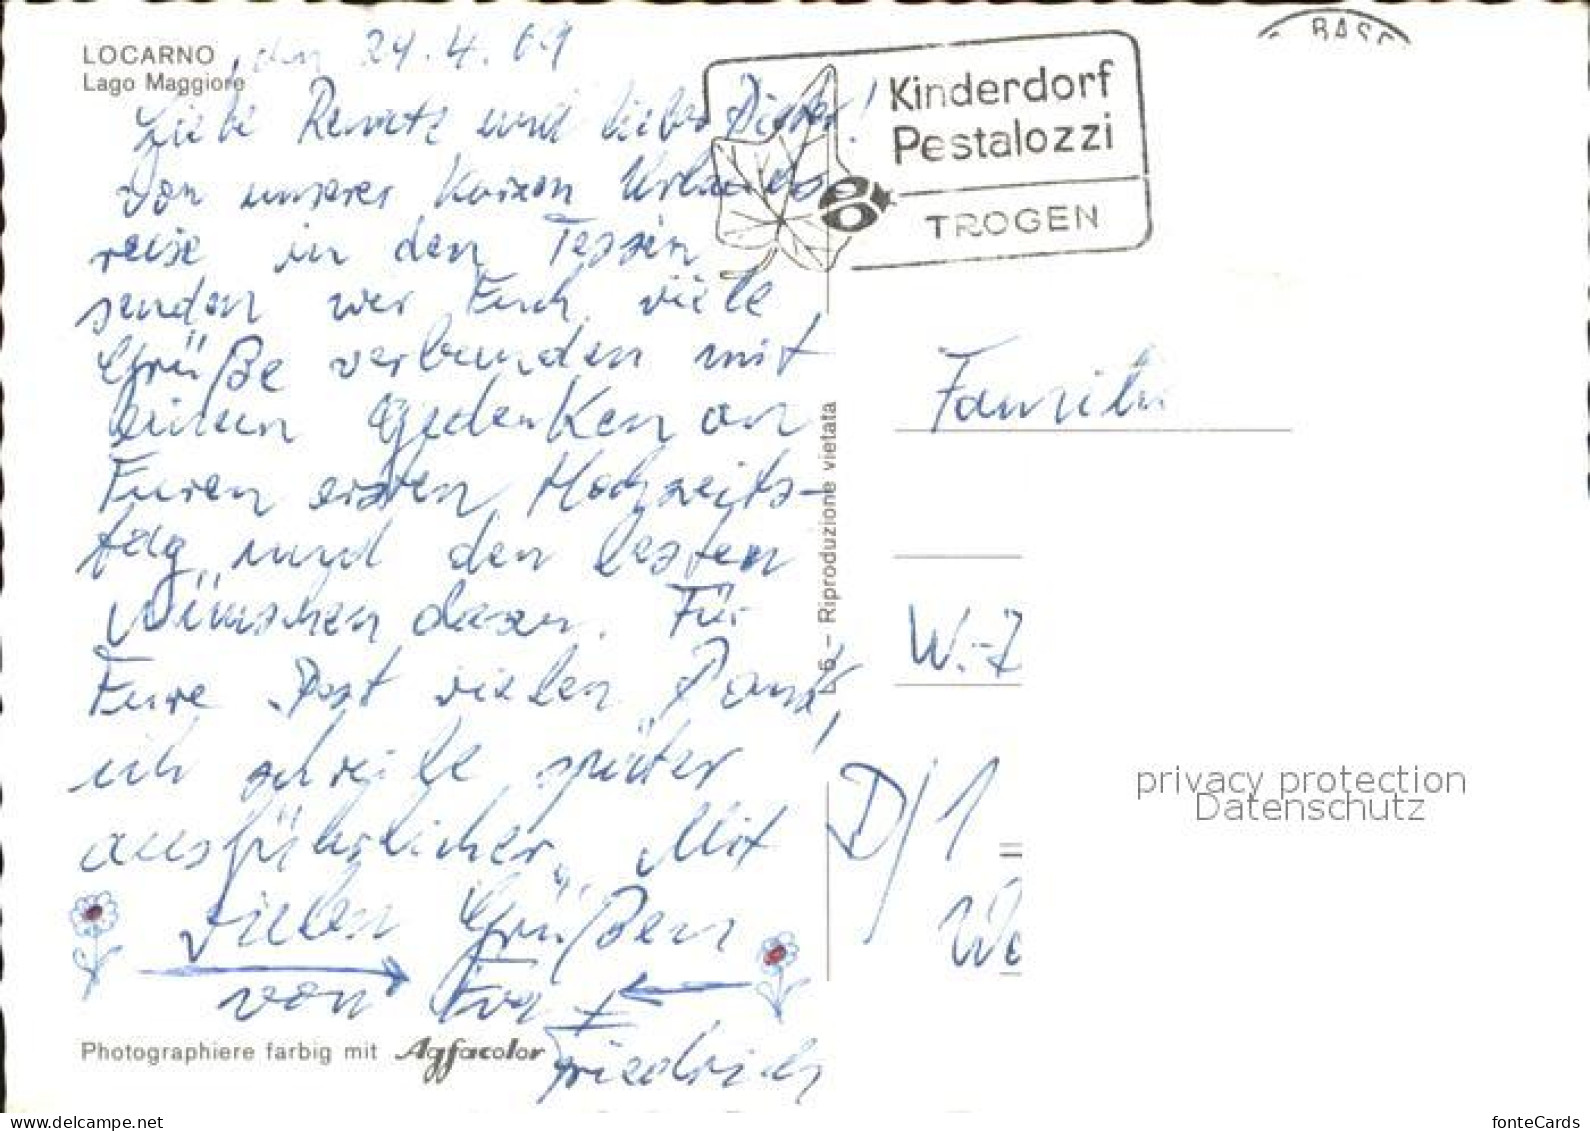 LOCARNO
Lago Maggiore
, den 24.4.69
Liebe Renate und lieber Dieter!
Von unserer kurzen Urlaubs
reise in den Tessin
senden wir Euch viele
Grüße verbunden mit
lieben Gedenken an
Euren ersten Hochzeits-
tag und den besten
Wünschen dazu. Für
Eure Post vielen Dank,
ich schreibe später
ausführlicher. Mit
vielen Grüßen
von Eva +
Friedrich
Photographiere farbig mit Agfacolor
L 6 – Riproduzione vietata
BASE
Kinderdorf
Pestalozzi
TROGEN
Familie
W.-Z
D/1
We
privacy protection
Datenschutz
www.delcampe.net
fonteCards